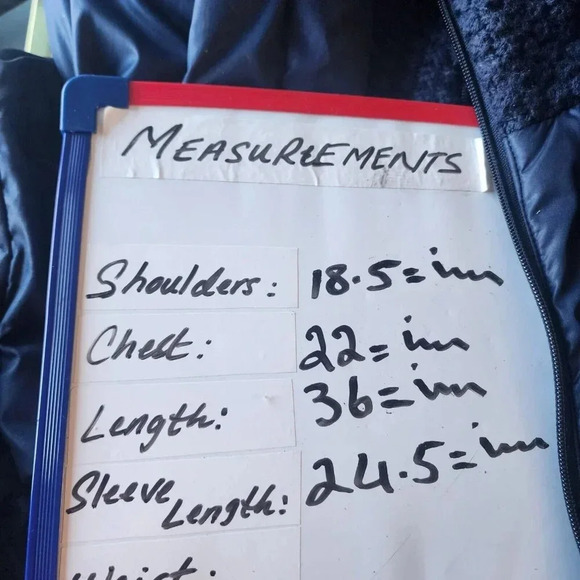 MEASUREMENTS
Shoulders: 18.5=inn
Chest: 22=inn
Length: 36=inn
Sleeve Length: 24.5=inn
Waist: